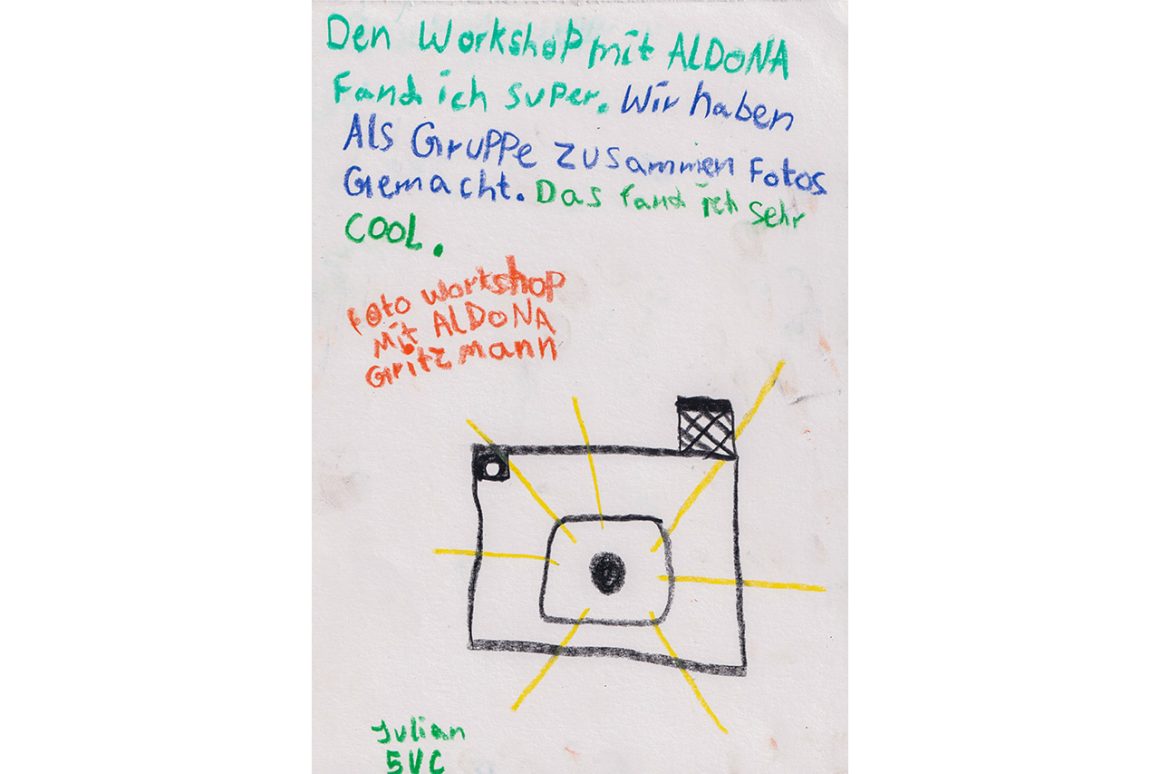 Den Workshop mit ALDONA
Fand ich super. Wir haben
Als Gruppe zusammen Fotos
Gemacht. Das fand ich sehr
COOL.
Foto workshop
Mit ALDONA
Gritzmann
Julian
5VC